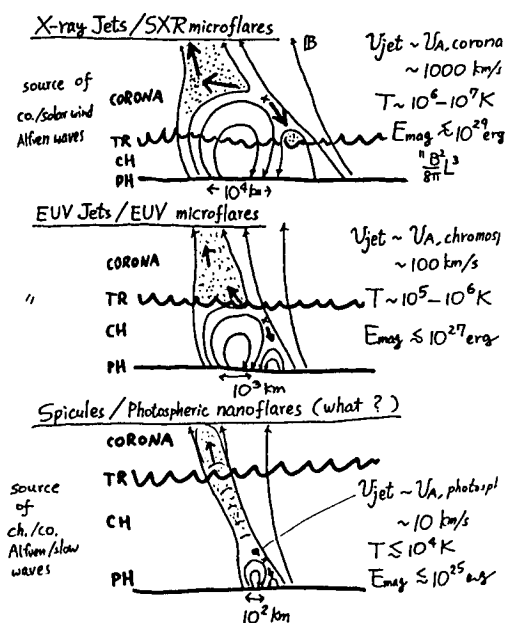 X-ray Jets / SXR microflares
source of
co./solar wind
Alfven waves
CORONA
TR
CH
PH
B
10⁴ km
Vjet ~ VA, corona
~ 1000 km/s
T ~ 10⁶ – 10⁷ K
Emag ≲ 10²⁹ erg
"
B²/8π L³
EUV Jets / EUV microflares
"
CORONA
TR
CH
PH
10³ km
Vjet ~ VA, chromosp
~ 100 km/s
T ~ 10⁵ – 10⁶ K
Emag ≲ 10²⁷ erg
Spicules / Photospheric nanoflares (what ?)
source
of
ch./co.
Alfven/slow
waves
CORONA
TR
CH
PH
10² km
Vjet ~ VA, photospl
~ 10 km/s
T ≲ 10⁴ K
Emag ≲ 10²⁵ erg